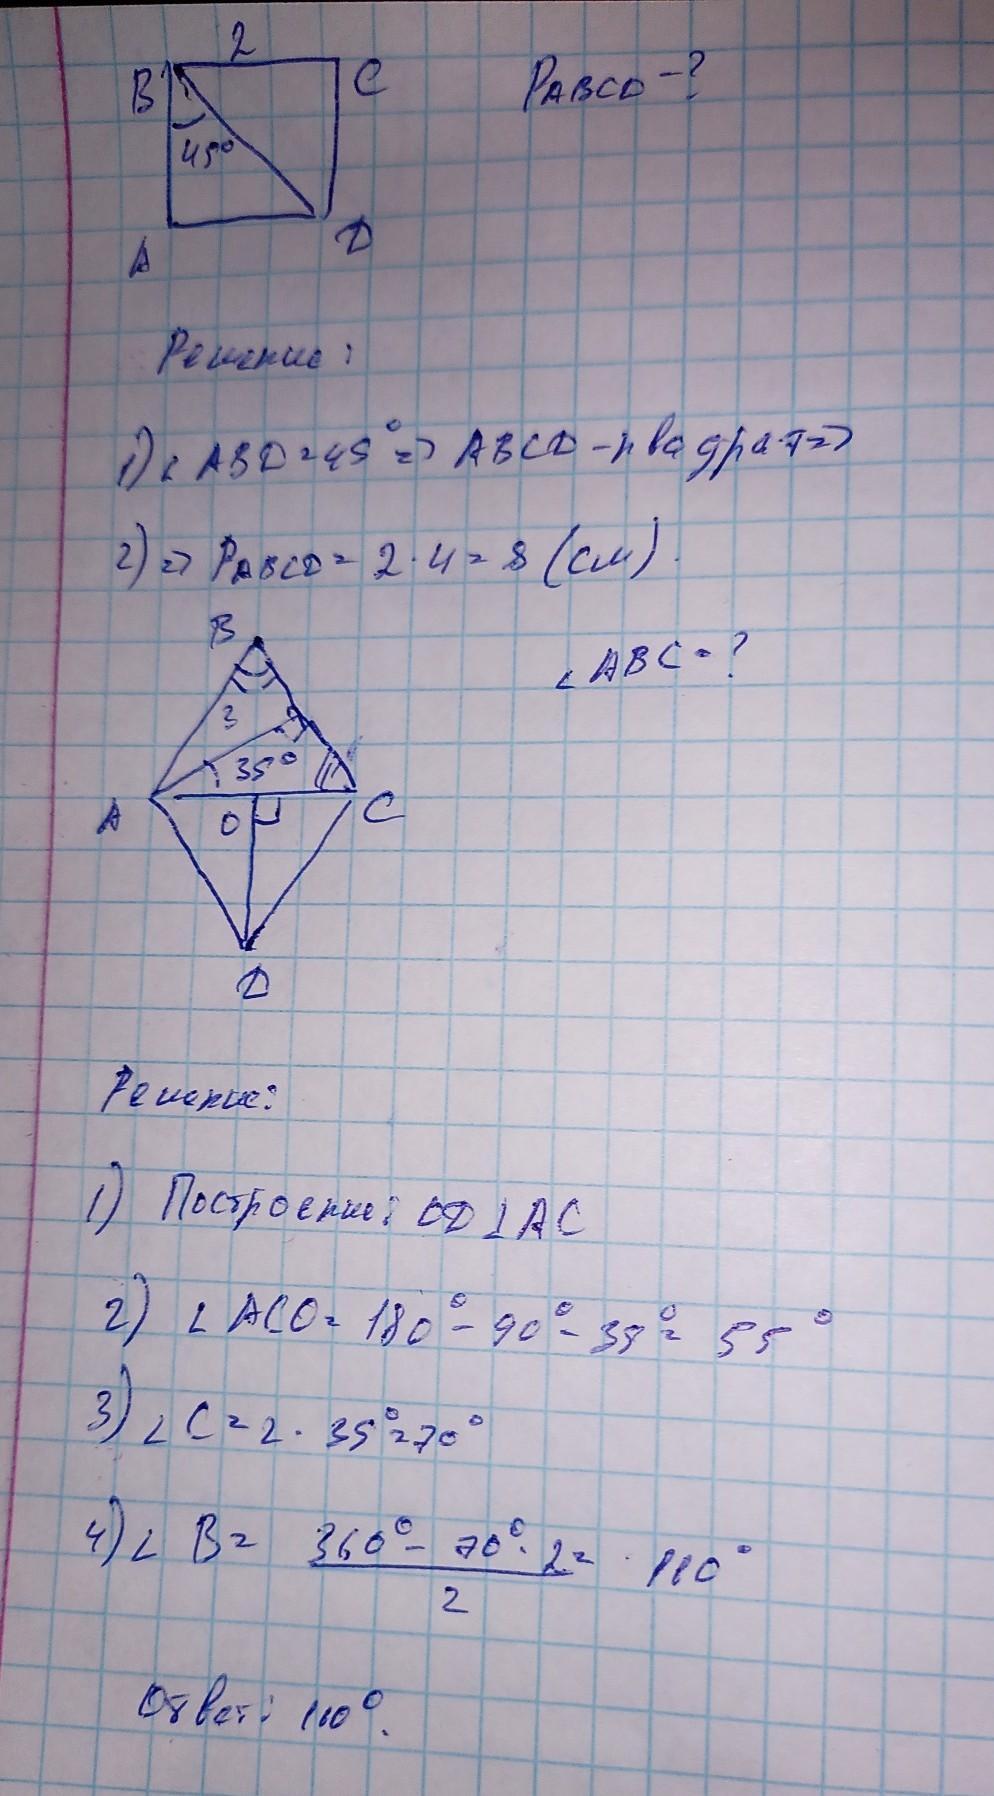 2
B C
45°
A D
P ABCD - ?
Решение:
1) ∠ ABD = 45° => ABCD - квадрат =>
2) => P ABCD = 2 · 4 = 8 (см).
B
3
35°
A O C
D
∠ ABC = ?
Решение:
1) Построение: OD ⊥ AC
2) ∠ ACO = 180° - 90° - 35° = 55°
3) ∠ C = 2 · 35° = 70°
4) ∠ B = 360° - 70° · 2 = 110°
2
Ответ: 110°.